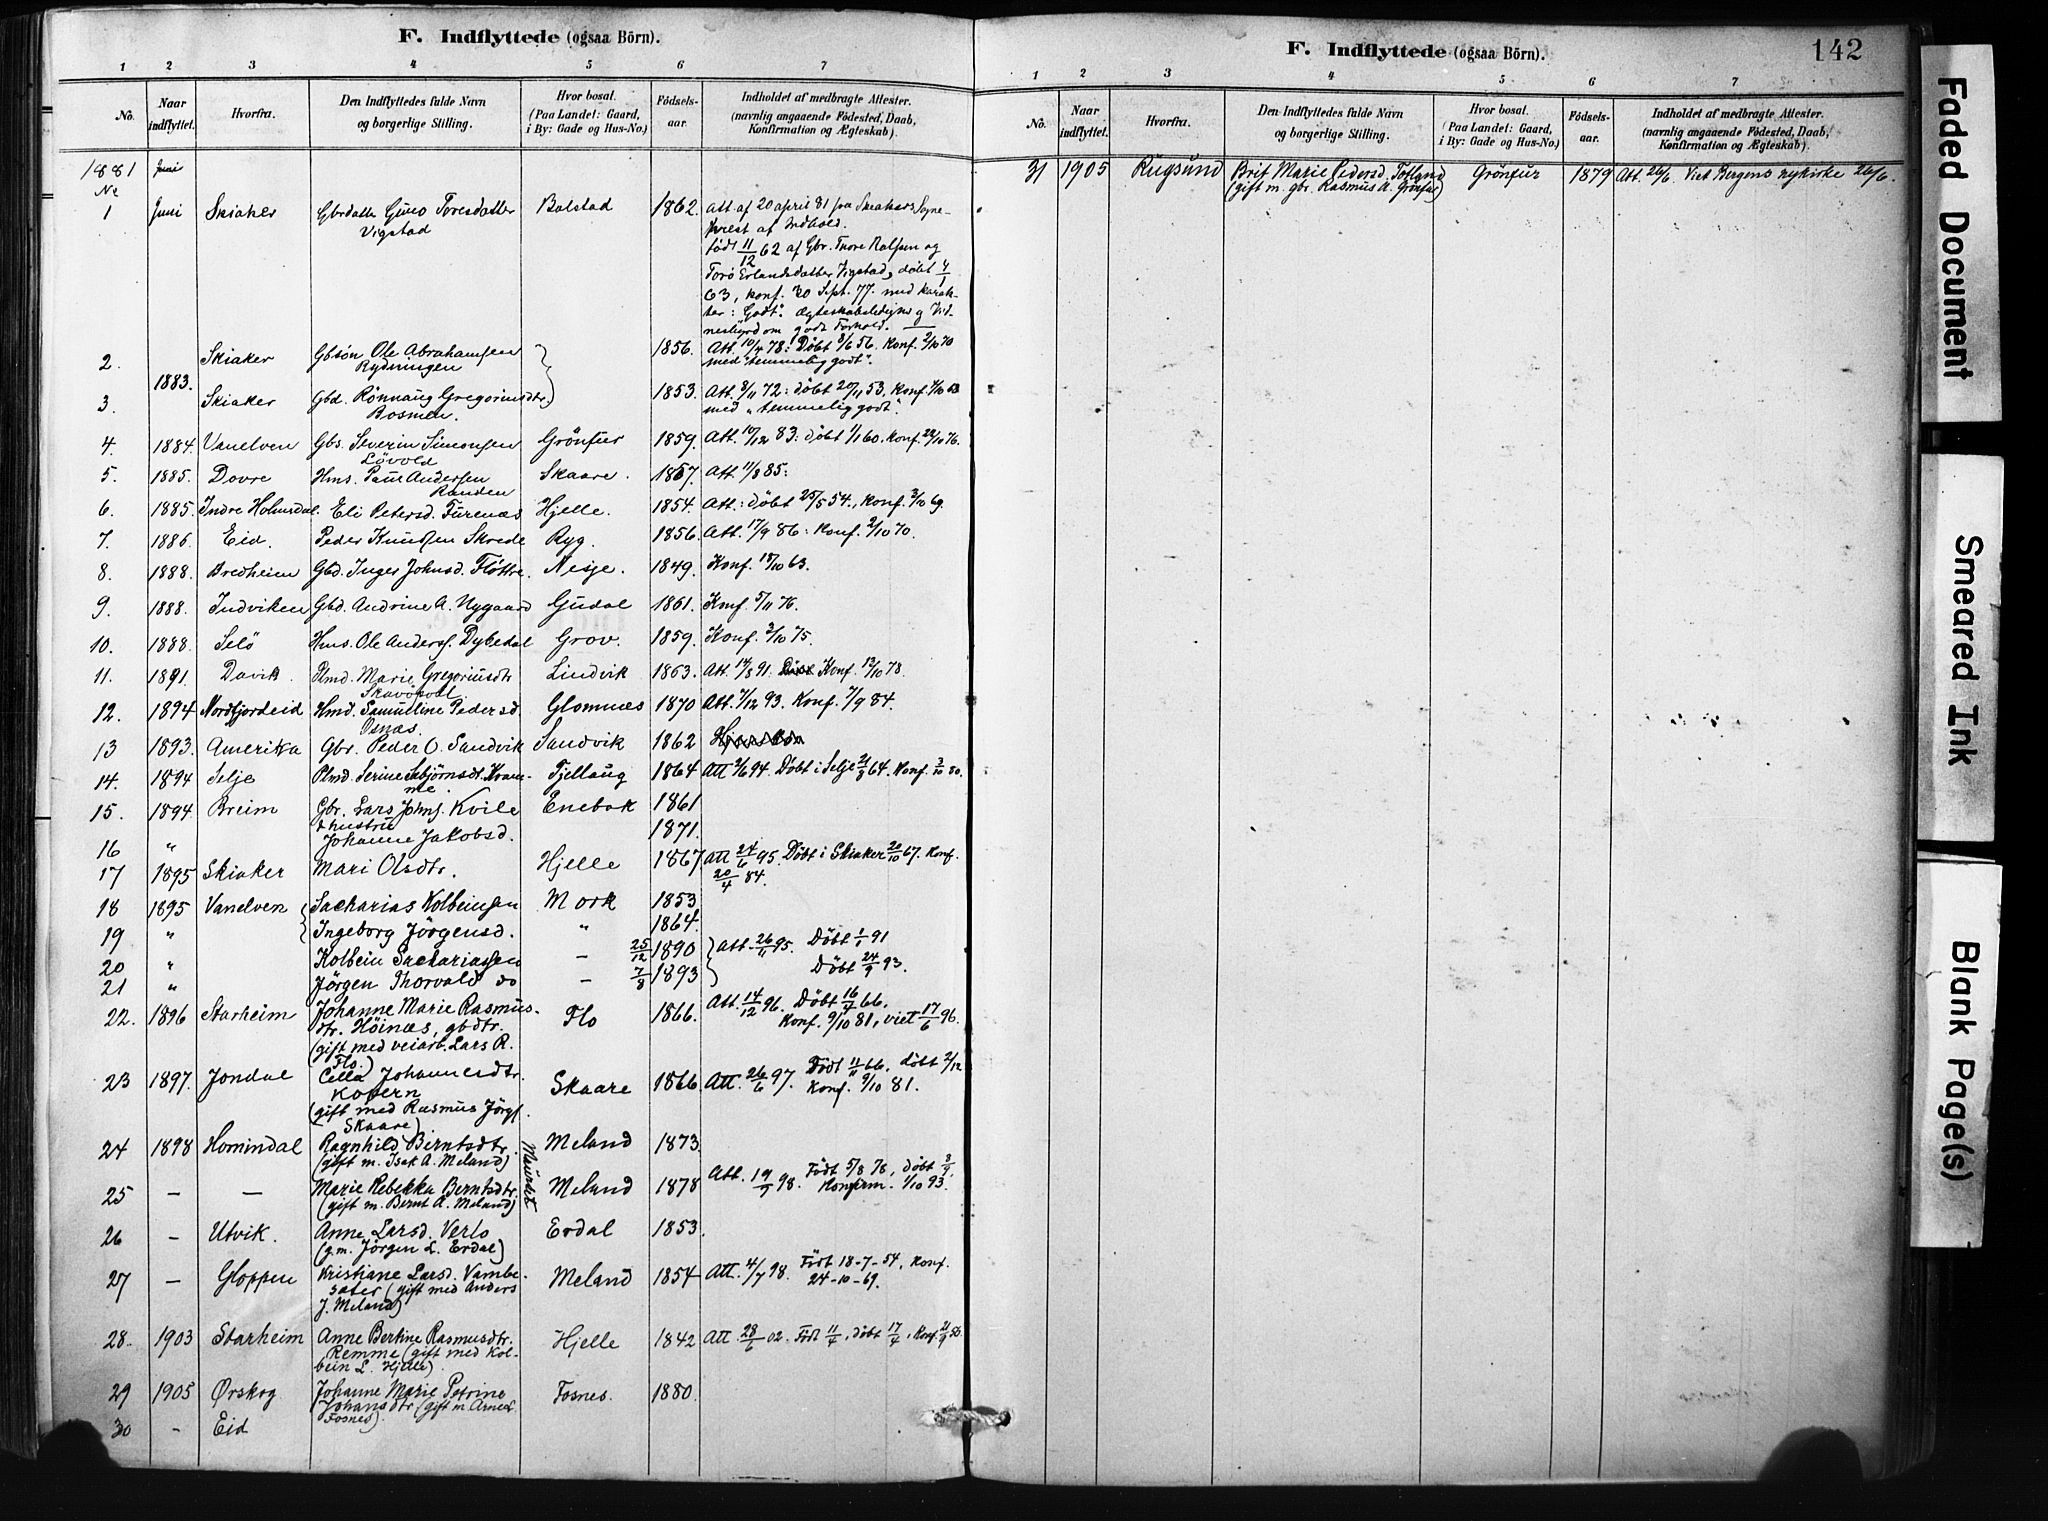 F. Indflyttede (ogsaa Börn).
1 2 3 4 5 6 7
No. Naar indflyttet. Hvorfra. Den Indflyttedes fulde Navn og borgerlige Stilling. Hvor bosat. (Paa Landet: Gaard, i By: Gade og Hus-No.) Födsels-aar. Indholdet af medbragte Attester. (navnlig angaaende Födested, Daab, Konfirmation og Ægteskab).
1881 Juni
No
1 Juni Skiaker Gbrdatter Guro Toresdatter Bolstad 1862. Att af 20 april 81 fra Skiakers Sogne-
Vigstad prest af Indhold.
født 11/12 62 af Gbr. Tore Rolfsen og
Torø Erlandsdatter Vigstad, døbt 4/1
63, konf. 30 Sept. 77. med karak-
ter: "Godt". Ægteskabsledighed og Vid-
nesbyrd om godt Forhold.
2. Skiaker Gbsön Ole Abrahamsen 1856. Att. 10/4 78: Døbt 8/6 56. Konf. 2/10 70
Rydningen med "temmelig godt".
1883.
3. Skiaker Gbd. Rönnaug Gregoriusdtr. 1853. Att. 8/11 72: døbt 20/11 53. Konf. 4/10 68
Bosmen. med "temmelig godt".
4. 1884. Vanelven Gbs. Severin Simonsen Grönfur 1859. Att. 10/12 83: døbt 1/1 60. Konf. 22/10 76.
Lövold
5. 1885. Dovre Hms. Paul Andersen Skaare. 1857. Att. 11/8 85:
Randen
6. 1885. Indre Holmedal. Eli Petersd. Furenæs Hjelle. 1854. Att.: døbt 25/5 54., Konf. 3/10 69.
7. 1886. Eid. Peder Knudsen Skrede Ryg. 1856. Att. 17/9 86: Konf. 2/10 70.
8. 1888. Bredheim Gbd. Inger Johnsd. Flöttre. Nesje. 1849. Konf. 18/10 63.
9. 1888. Indviken Gbd. Andrine A. Nygaard Gudal 1861. Konf. 5/11 76.
10. 1888. Selö Hms. Ole Anders. Dybedal Grov. 1859. Konf. 3/10 75.
11. 1891. Davik. Plmd. Marie Gregoriusdtr Lindvik 1863. Att. 14/8 91. Döbt Konf. 13/10 78.
12. 1894 Nordfjordeid Hmd. Samuline Pedersd. Glomnæs 1870 Att. 7/12 93. Konf. 7/9 84.
Osnæs.
13 1893. Amerika Gbr. Peder O. Sandvik Sandvik 1862
14. 1894 Selje Plmd. Serine Asbjörnsdt. Kvam- Tjellaug 1864 Att 2/6 94. Döbt i Selje 21/8 64. Konf. 3/10 80.
me.
15. 1894. Breim Gbr. Lars Johns. Kvile Enebok 1861
& hustru
16 " Johanne Jakobsd. 1871.
17 1895 Skiaker Mari Olsdtr. Hjelle 1867 Att 24/6 95. Döbt i Skiaker 20/10 67. Konf.
20/4 84.
18 1895 Vanelven Sacharias Kolbeinsen Mork 1853
19 " Ingeborg Jörgensd. " 1864.
20 " Kolbein Sachariassen - 25/12 1890 Att. 26/11 95. Döbt 1/1 91
21 " Jörgen Thorvald do - 7/8 1893 Döbt 24/9 93.
22. 1896 Starheim Johanne Marie Rasmus- Flo 1866. Att. 14/12 96. Döbt 16/7 66.
dtr. Höinæs, gbdtr. Konf. 9/10 81, viet 17/6 96.
(gift med veiarb. Lars R.
Flo.)
23 1897. Jondal Cella Johannesdtr. Skaare 1866 Att. 26/6 97. Födt 11/11 66. döbt 2/12
Kopern Konf. 9/10 81.
(gift med Rasmus Jörgs.
Skaare)
24 1898 Hornindal Ragnhild Berntsdtr. Meland 1873.
(gift m. Isak A. Meland)
25 - - Marie Rebekka Berntsdtr. Meland 1878 Att. 19/7 98. Födt 5/8 78, döbt 8/9.
(gift m. Bernt A. Meland) Konfirm. 1/10 93.
26 - Utvik. Anne Larsd. Verlo Erdal 1853.
(g.m. Jörgen L. Erdal)
27 - Gloppen Kristiane Larsd. Vambe- Meland 1854 Att. 4/7 98. Födt 18-7-54, Konf.
sæter (gift med Anders 24-10-69.
J. Meland)
28. 1903 Starheim Anne Bertine Rasmusdtr. Hjelle 1842 Att. 28/6 02. Födt 11/4, döbt 17/4, Konf. 21/9 56.
Remme (gift med Kol-
bein L. Hjelle)
29 1905 Ørskog Johanne Marie Petrine Fosnes. 1880.
Johansdtr (gift m. Arne L.
Fosnes)
30 - Eid
F. Indflyttede (ogsaa Börn).
142
1 2 3 4 5 6 7
No. Naar indflyttet. Hvorfra. Den Indflyttedes fulde Navn og borgerlige Stilling. Hvor bosat. (Paa Landet: Gaard, i By: Gade og Hus-No.) Födsels-aar. Indholdet af medbragte Attester. (navnlig angaaende Födested, Daab, Konfirmation og Ægteskab).
31 1905 Rugsund Brit Marie Pedersd. Totland Grönfur 1879 Att. 26/6. Viet Bergens nykirke 26/6.
(gift m. gbr. Rasmus A. Grönfur)
Faded Document
Smeared Ink
Blank Page(s)